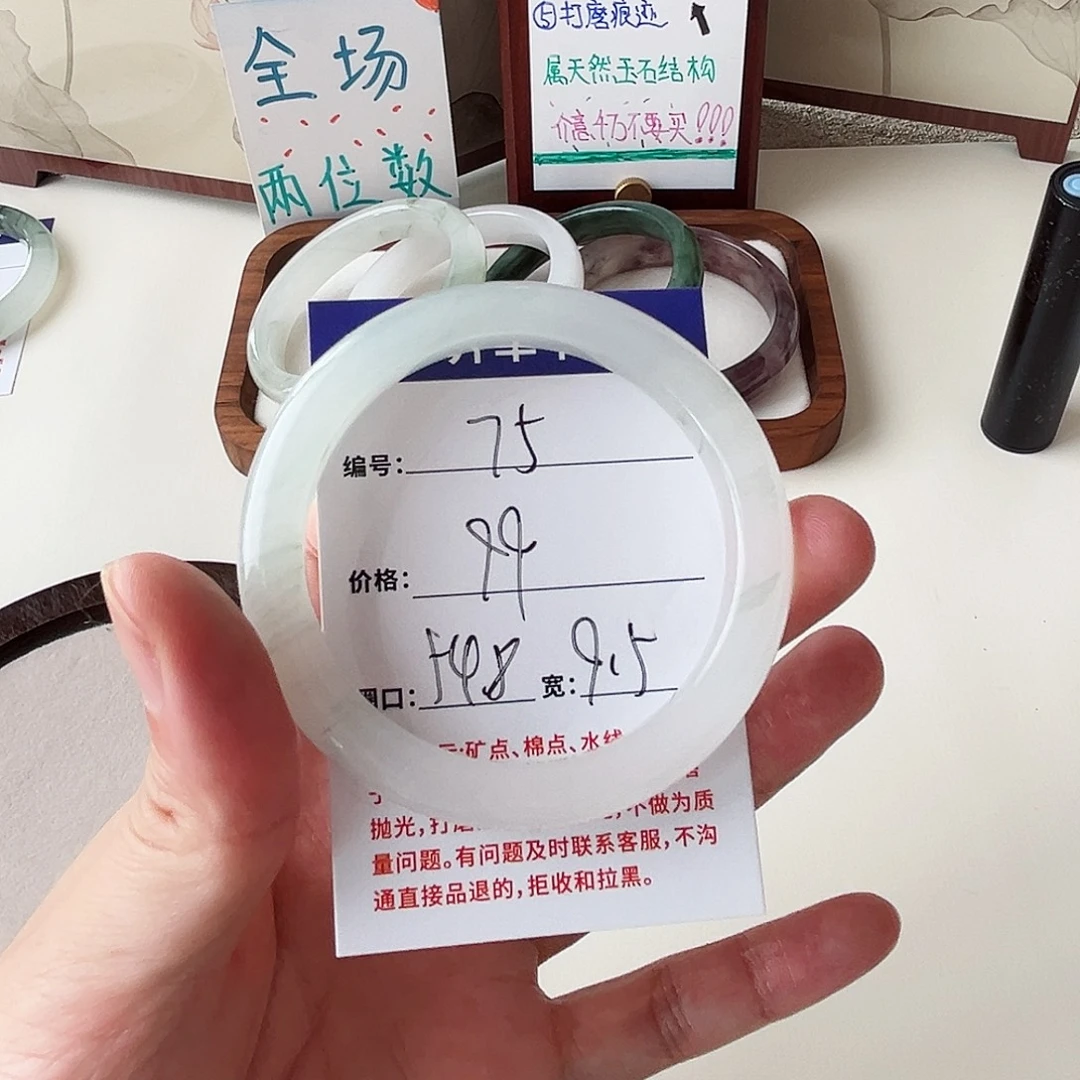 全场
两位数
⑤打磨痕迹
属天然玉石结构
介意千万不要买!!!
编号: 75
价格: 99
圈口: 54.8 宽: 9.5
矿点、棉点、水线
抛光,打磨
不做为质
量问题。有问题及时联系客服,不沟
通直接品退的,拒收和拉黑。